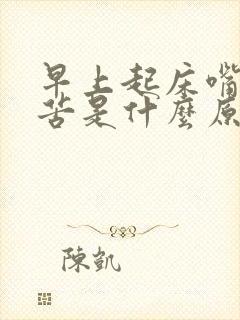 早上起床嘴
苦是什麼原
陳凱